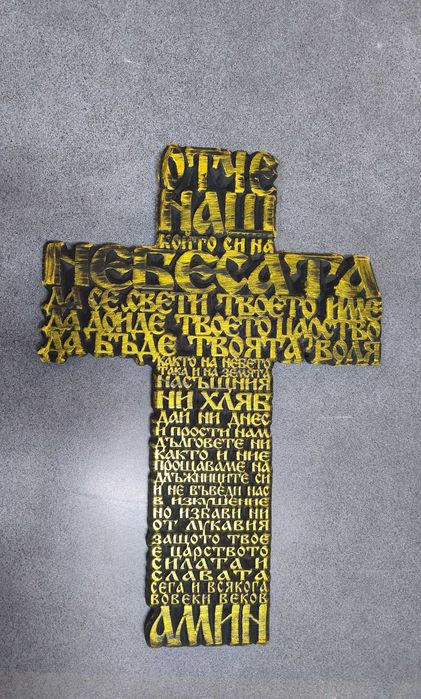 ОТЧЕ
НАШ
КОЙТО СИ НА
НЕБЕСАТА
ДА СЕ СВЕТИ ТВОЕТО ИМЕ
ДА ДОЙДЕ ТВОЕТО ЦАРСТВО
ДА БЪДЕ ТВОЯТА ВОЛЯ
КАКТО НА НЕБЕТО
ТАКА И НА ЗЕМЯТА
НАСЪЩНИЯ
НИ ХЛЯБ
ДАЙ НИ ДНЕС
И ПРОСТИ НАМ
ДЪЛГОВЕТЕ НИ
КАКТО И НИЕ
ПРОЩАВАМЕ НА
ДЛЪЖНИЦИТЕ СИ
И НЕ ВЪВЕДИ НАС
В ИЗКУШЕНИЕ
НО ИЗБАВИ НИ
ОТ ЛУКАВИЯ
ЗАЩОТО ТВОЕ
Е ЦАРСТВОТО
СИЛАТА И
СЛАВАТА
СЕГА И ВСЯКОГА
ВОВЕКИ ВЕКОВ
АМИН